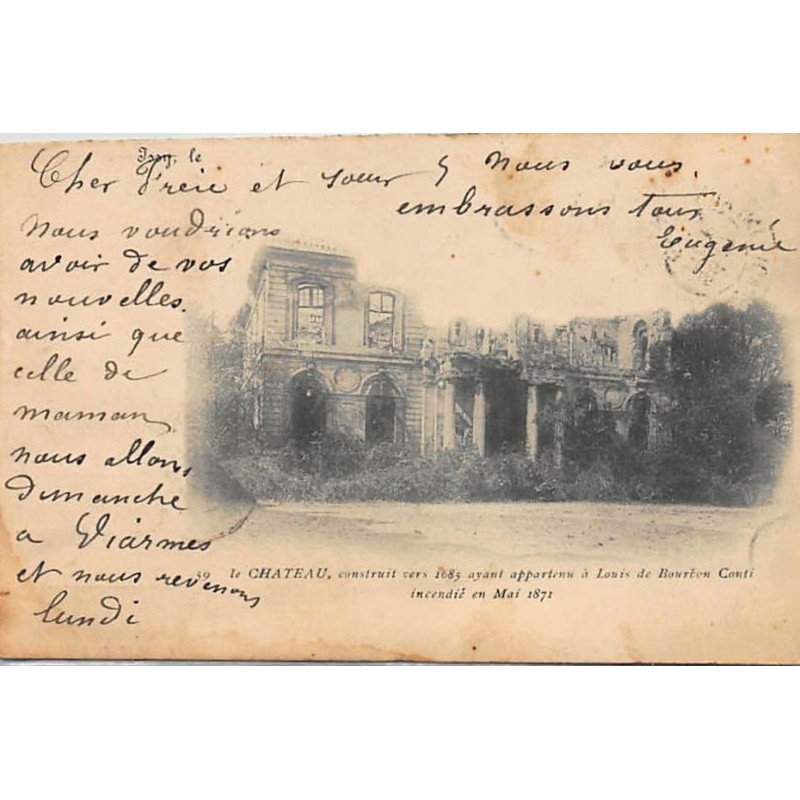 Issy, le
Cher Frère et sœur
Nous voudrions
avoir de vos
nouvelles
ainsi que
celle de
maman
nous allons
dimanche
a Viarmes
et nous revenons
lundi
Nous vous
embrassons tous
Eugenie
59 le CHATEAU, construit vers 1685 ayant appartenu à Louis de Bourbon Conti
incendié en Mai 1871